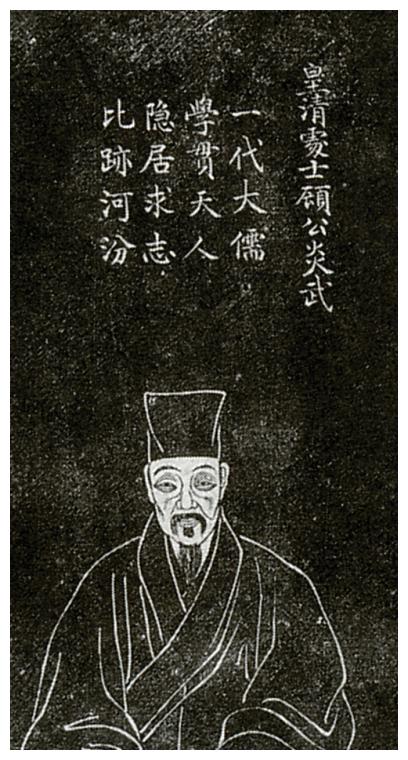 皇清處士顧公炎武
一代大儒
學貫天人
隐居求志
比跡河汾